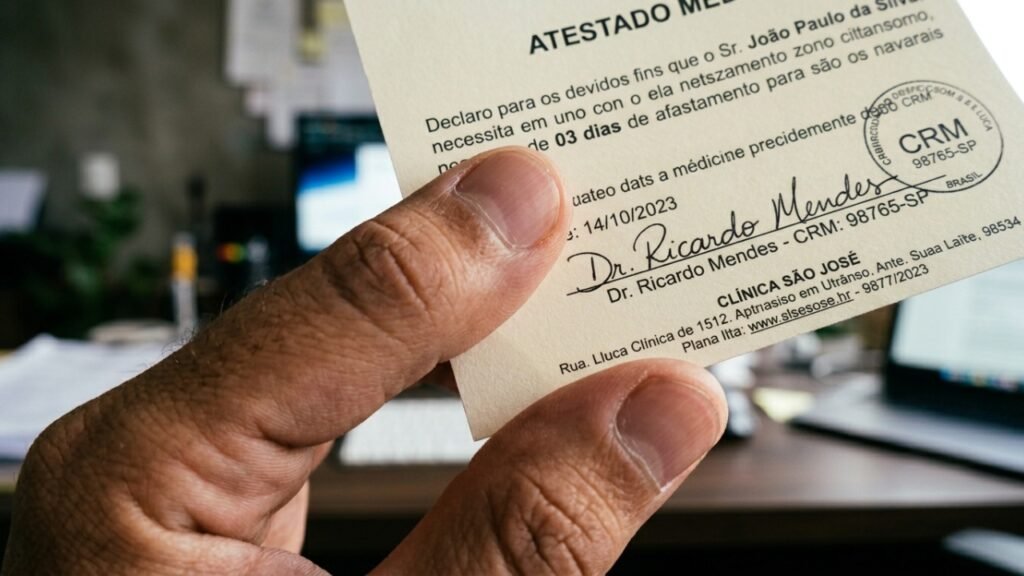 ATESTADO MÉD
Declaro para os devidos fins que o Sr. João Paulo da Silva
necessita em uno con o ela netszamento zono cittansorno,
de 03 dias de afastamento para são os navarais
uateo dats a médicine precidemente dseo CRM
: 14/10/2023
CRM
98765-SP
BRASIL
Dr. Ricardo Mendes
Dr. Ricardo Mendes - CRM: 98765-SP
CLÍNICA SÃO JOSÉ
Rua. Lluca Clínica de 1512. Aptnasiso em Utrânso. Ante. Suaa Laite, 98534
Plana Ilta: www.slsesose.hr - 9877/2023